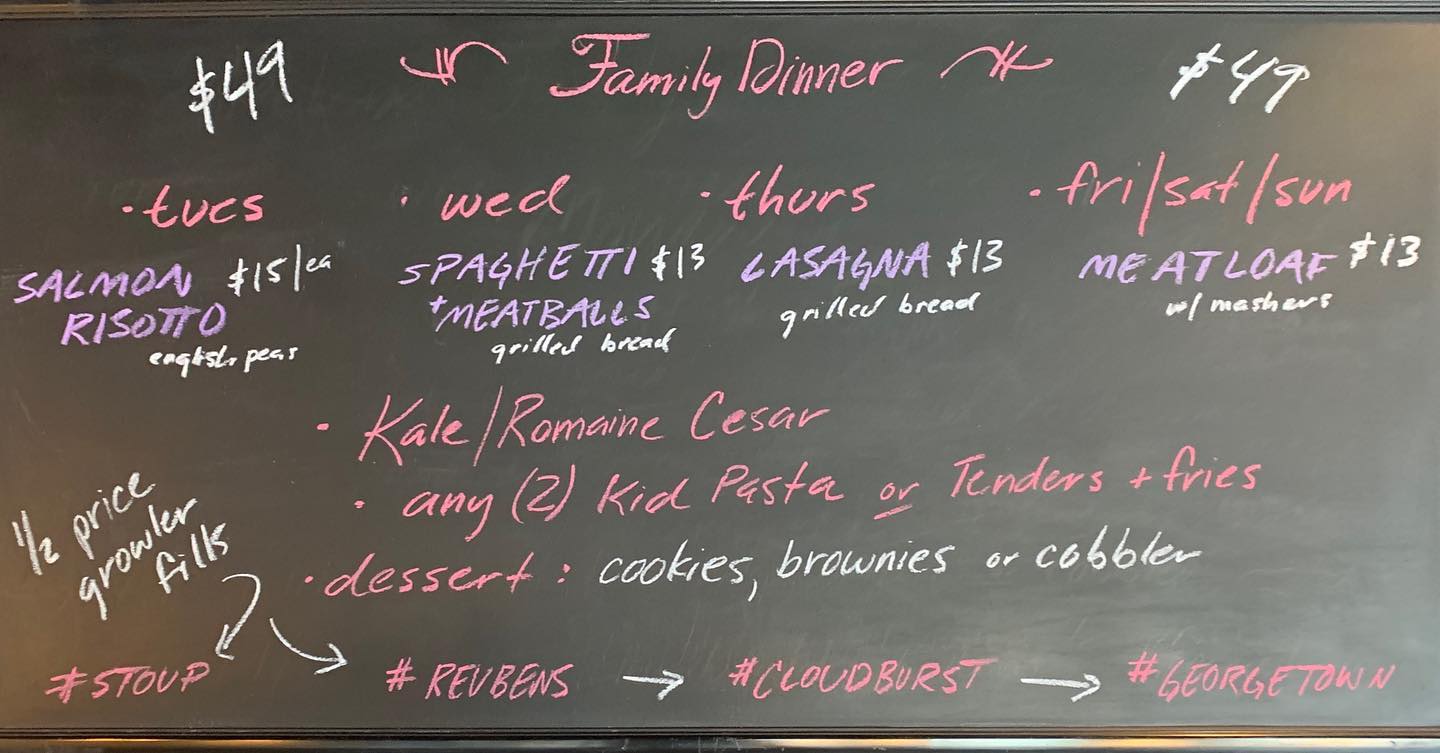 $49 Family Dinner $49
· tues · wed · thurs · fri/sat/sun
SALMON $15/ea SPAGHETTI $13 LASAGNA $13 MEATLOAF $13
RISOTTO + MEATBALLS grilled bread w/ mashers
english peas grilled bread
· Kale/Romaine Cesar
· any (2) Kid Pasta or Tenders + fries
· dessert: cookies, brownies or cobbler
1/2 price
growler
fills
#STOUP #REUBENS → #CLOUDBURST → #GEORGETOWN